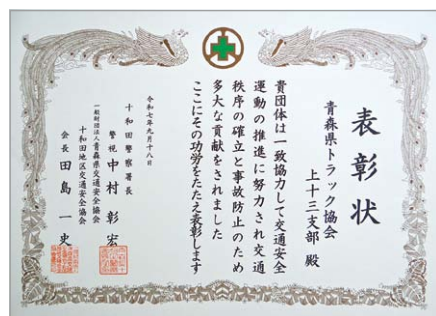 表彰状
青森県トラック協会
上十三支部 殿
貴団体は一致協力して交通安全
運動の推進に努力され交通
秩序の確立と事故防止のため
多大な貢献をされました
ここにその功労をたたえ表彰します
令和七年九月十八日
十和田警察署長
警視 中村彰宏
一般財団法人青森県交通安全協会
十和田地区交通安全協会
会長 田島一史